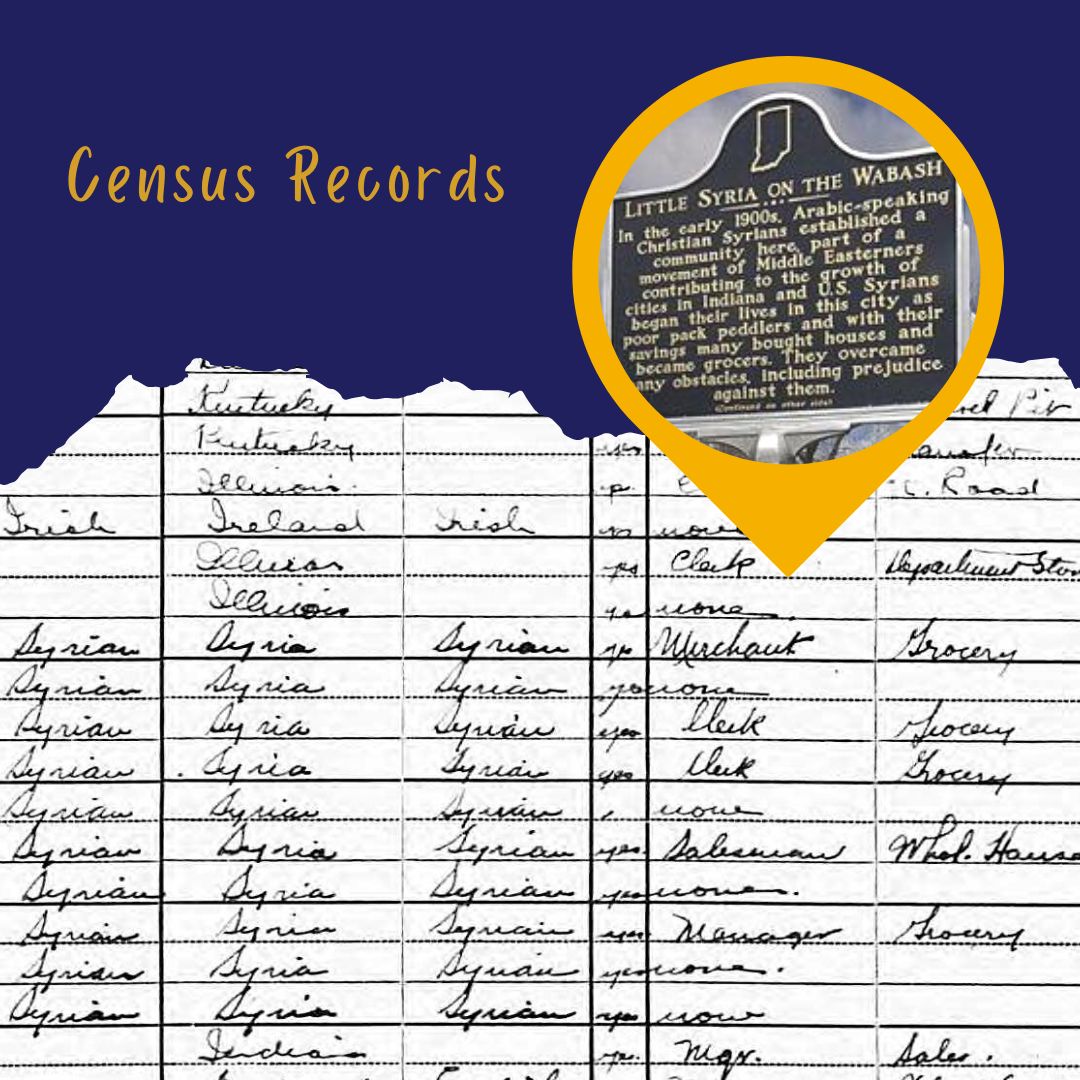 Census Records
LITTLE SYRIA ON THE WABASH
In the early 1900s, Arabic-speaking
Christian Syrians established a
community here, part of a
movement of Middle Easterners
contributing to the growth of
cities in Indiana and U.S. Syrians
began their lives in this city as
poor pack peddlers and with their
savings many bought houses and
became grocers. They overcame
any obstacles, including prejudice
against them.
(Continued on other side)
Kentucky
Kentucky yes
Illinois. C. Road
Irish Ireland Irish none
Illinois yes Clerk Department Stor
Illinois none
Syrian Syria Syrian yes Merchant Grocery
Syrian Syria Syrian none
Syrian Syria Syrian yes Clerk Grocery
Syrian Syria Syrian yes Clerk Grocery
Syrian Syrian Syrian none
Syrian Syria Syrian yes Salesman Whol. House
Syrian Syria Syrian yes none.
Syrian Syria Syrian yes Manager Grocery
Syrian Syria Syrian yes none.
Syrian Syria Syrian yes none
yes. Mgr. Sales.